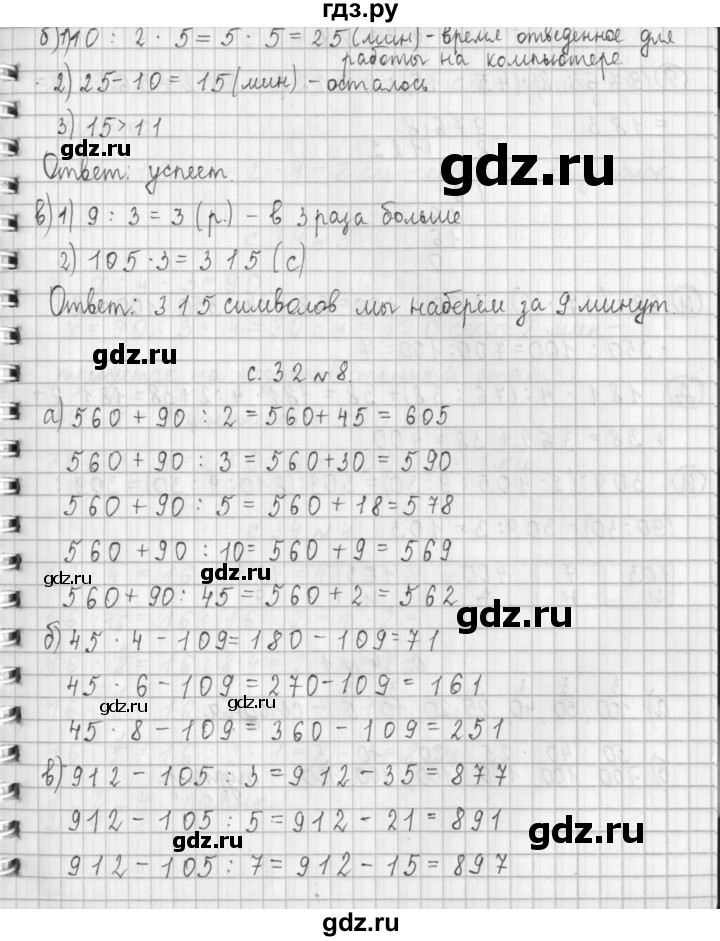 гдз.ру
б) 1) 10 : 2 · 5 = 5 · 5 = 25 (мин) - время отведенное для
работы на компьютере
2) 25 - 10 = 15 (мин) - осталось
3) 15 > 11
gdz.ru
gdz.ru
Ответ: успеет.
в) 1) 9 : 3 = 3 (р.) - в 3 раза больше
2) 105 · 3 = 315 (с)
Ответ: 315 символов мы наберем за 9 минут.
gdz.ru
с. 32 № 8.
а) 560 + 90 : 2 = 560 + 45 = 605
560 + 90 : 3 = 560 + 30 = 590
560 + 90 : 5 = 560 + 18 = 578
560 + 90 : 10 = 560 + 9 = 569
gdz.ru
gdz.ru
560 + 90 : 45 = 560 + 2 = 562
gdz.ru
б) 45 · 4 - 109 = 180 - 109 = 71
45 · 6 - 109 = 270 - 109 = 161
gdz.ru
gdz.ru
45 · 8 - 109 = 360 - 109 = 251
в) 912 - 105 : 3 = 912 - 35 = 877
912 - 105 : 5 = 912 - 21 = 891
gdz.ru
gdz.ru
912 - 105 : 7 = 912 - 15 = 897
gdz.ru